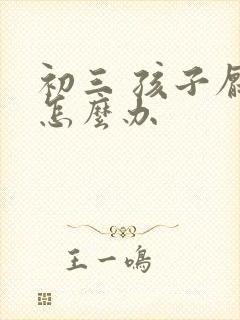 初三 孩子
怎麼办
王一鳴